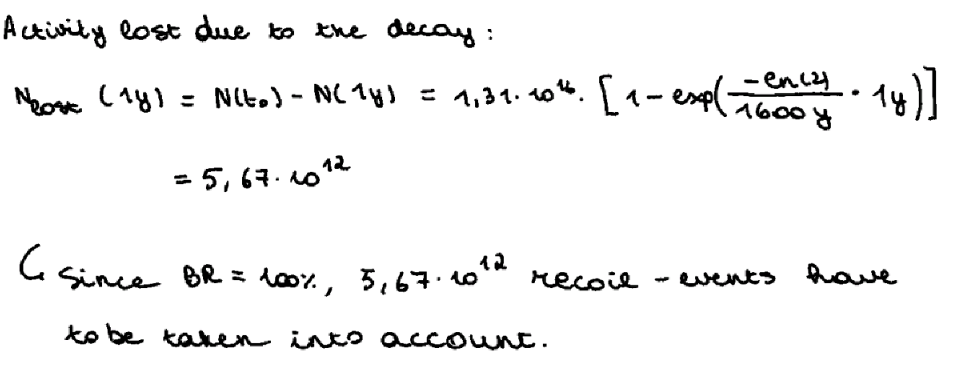 Activity lost due to the decay :
N_lost (1y) = N(t₀) - N(1y) = 1,31 · 10¹⁶ · [1 - exp(-ln(2)/1600y · 1y)]
= 5,67 · 10¹²
↳ since BR = 100%, 5,67 · 10¹² recoil - events have
to be taken into account.